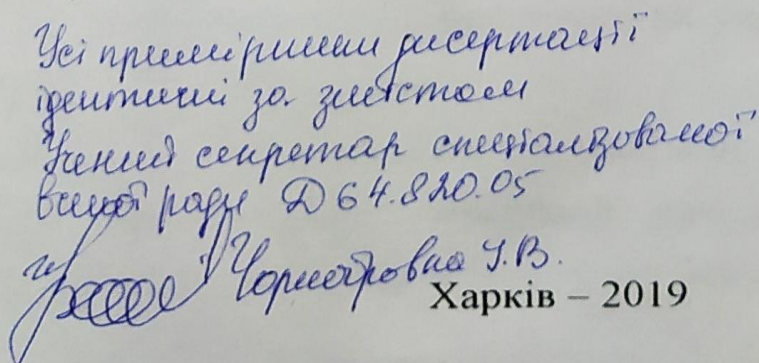 Усі примірники дисертації
ідентичні за змістом
Учений секретар спеціалізованої
вченої ради Д 64.820.05
І.В.
Харків – 2019